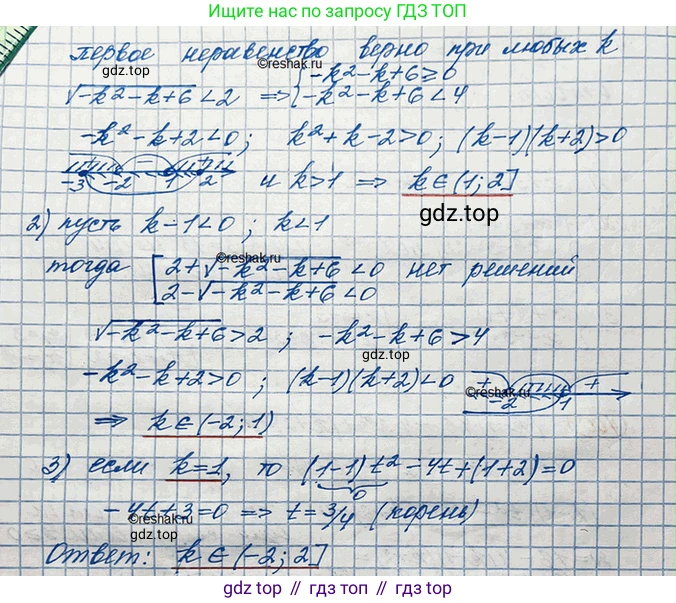 Ищите нас по запросу ГДЗ ТОП
первое неравенство верно при любых k
gdz.top ©reshak.ru
√-k²-k+6 < 2 ⇒ { -k²-k+6 ≥ 0
-k²-k+6 < 4
-k²-k+2 < 0 ; k²+k-2 > 0 ; (k-1)(k+2) > 0
+ - +
-3 -2 1 2 и k > 1 ⇒ k ∈ (1; 2]
gdz.top
2) пусть k-1 < 0 ; k < 1
©reshak.ru
тогда [ 2+√-k²-k+6 < 0 нет решений
2-√-k²-k+6 < 0
√-k²-k+6 > 2 ; -k²-k+6 > 4
gdz.top
-k²-k+2 > 0 ; (k-1)(k+2) < 0 + +
©reshak.ru
-2 1
⇒ k ∈ (-2; 1)
3) если k=1, то (1-1)t²-4t+(1+2)=0
0
-4t+3=0 ⇒ t=3/4 (корень)
©reshak.ru gdz.top
Ответ: k ∈ (-2; 2]
gdz.top // гдз.топ // gdz.top // гдз.топ